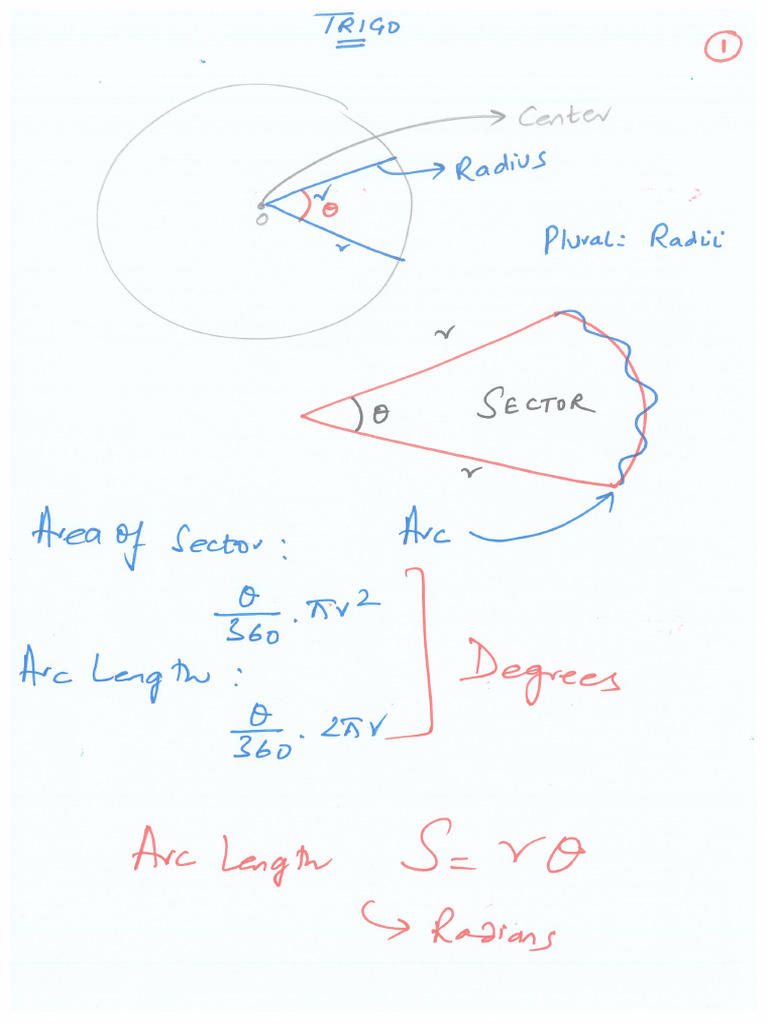 TRIGO
1
Center
Radius
r
θ
O
r
Plural: Radii
r
θ
SECTOR
r
Area of Sector:
Arc
θ/360 . πr2
Arc Length:
Degrees
θ/360 . 2πr
Arc Length S = rθ
Radians